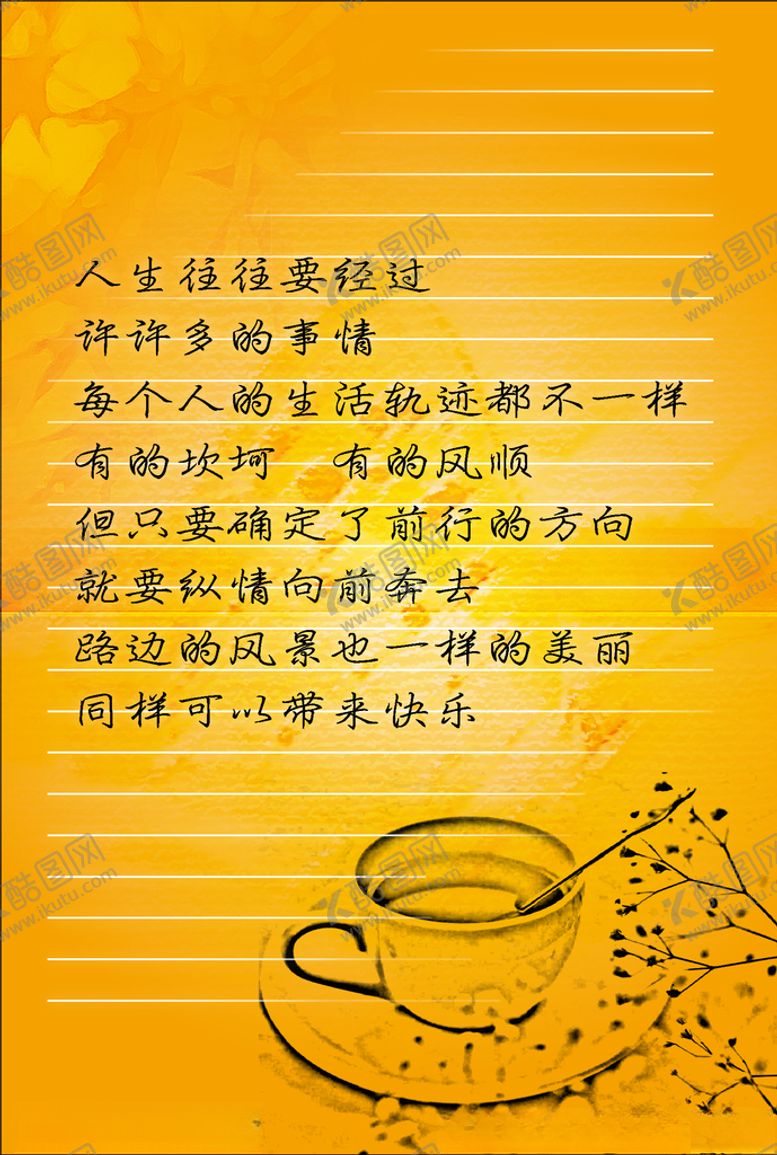 人生往往要经过
许许多的事情
每个人的生活轨迹都不一样
有的坎坷　有的风顺
但只要确定了前行的方向
就要纵情向前奔去
路边的风景也一样的美丽
同样可以带来快乐
酷图网
www.ikutu.com